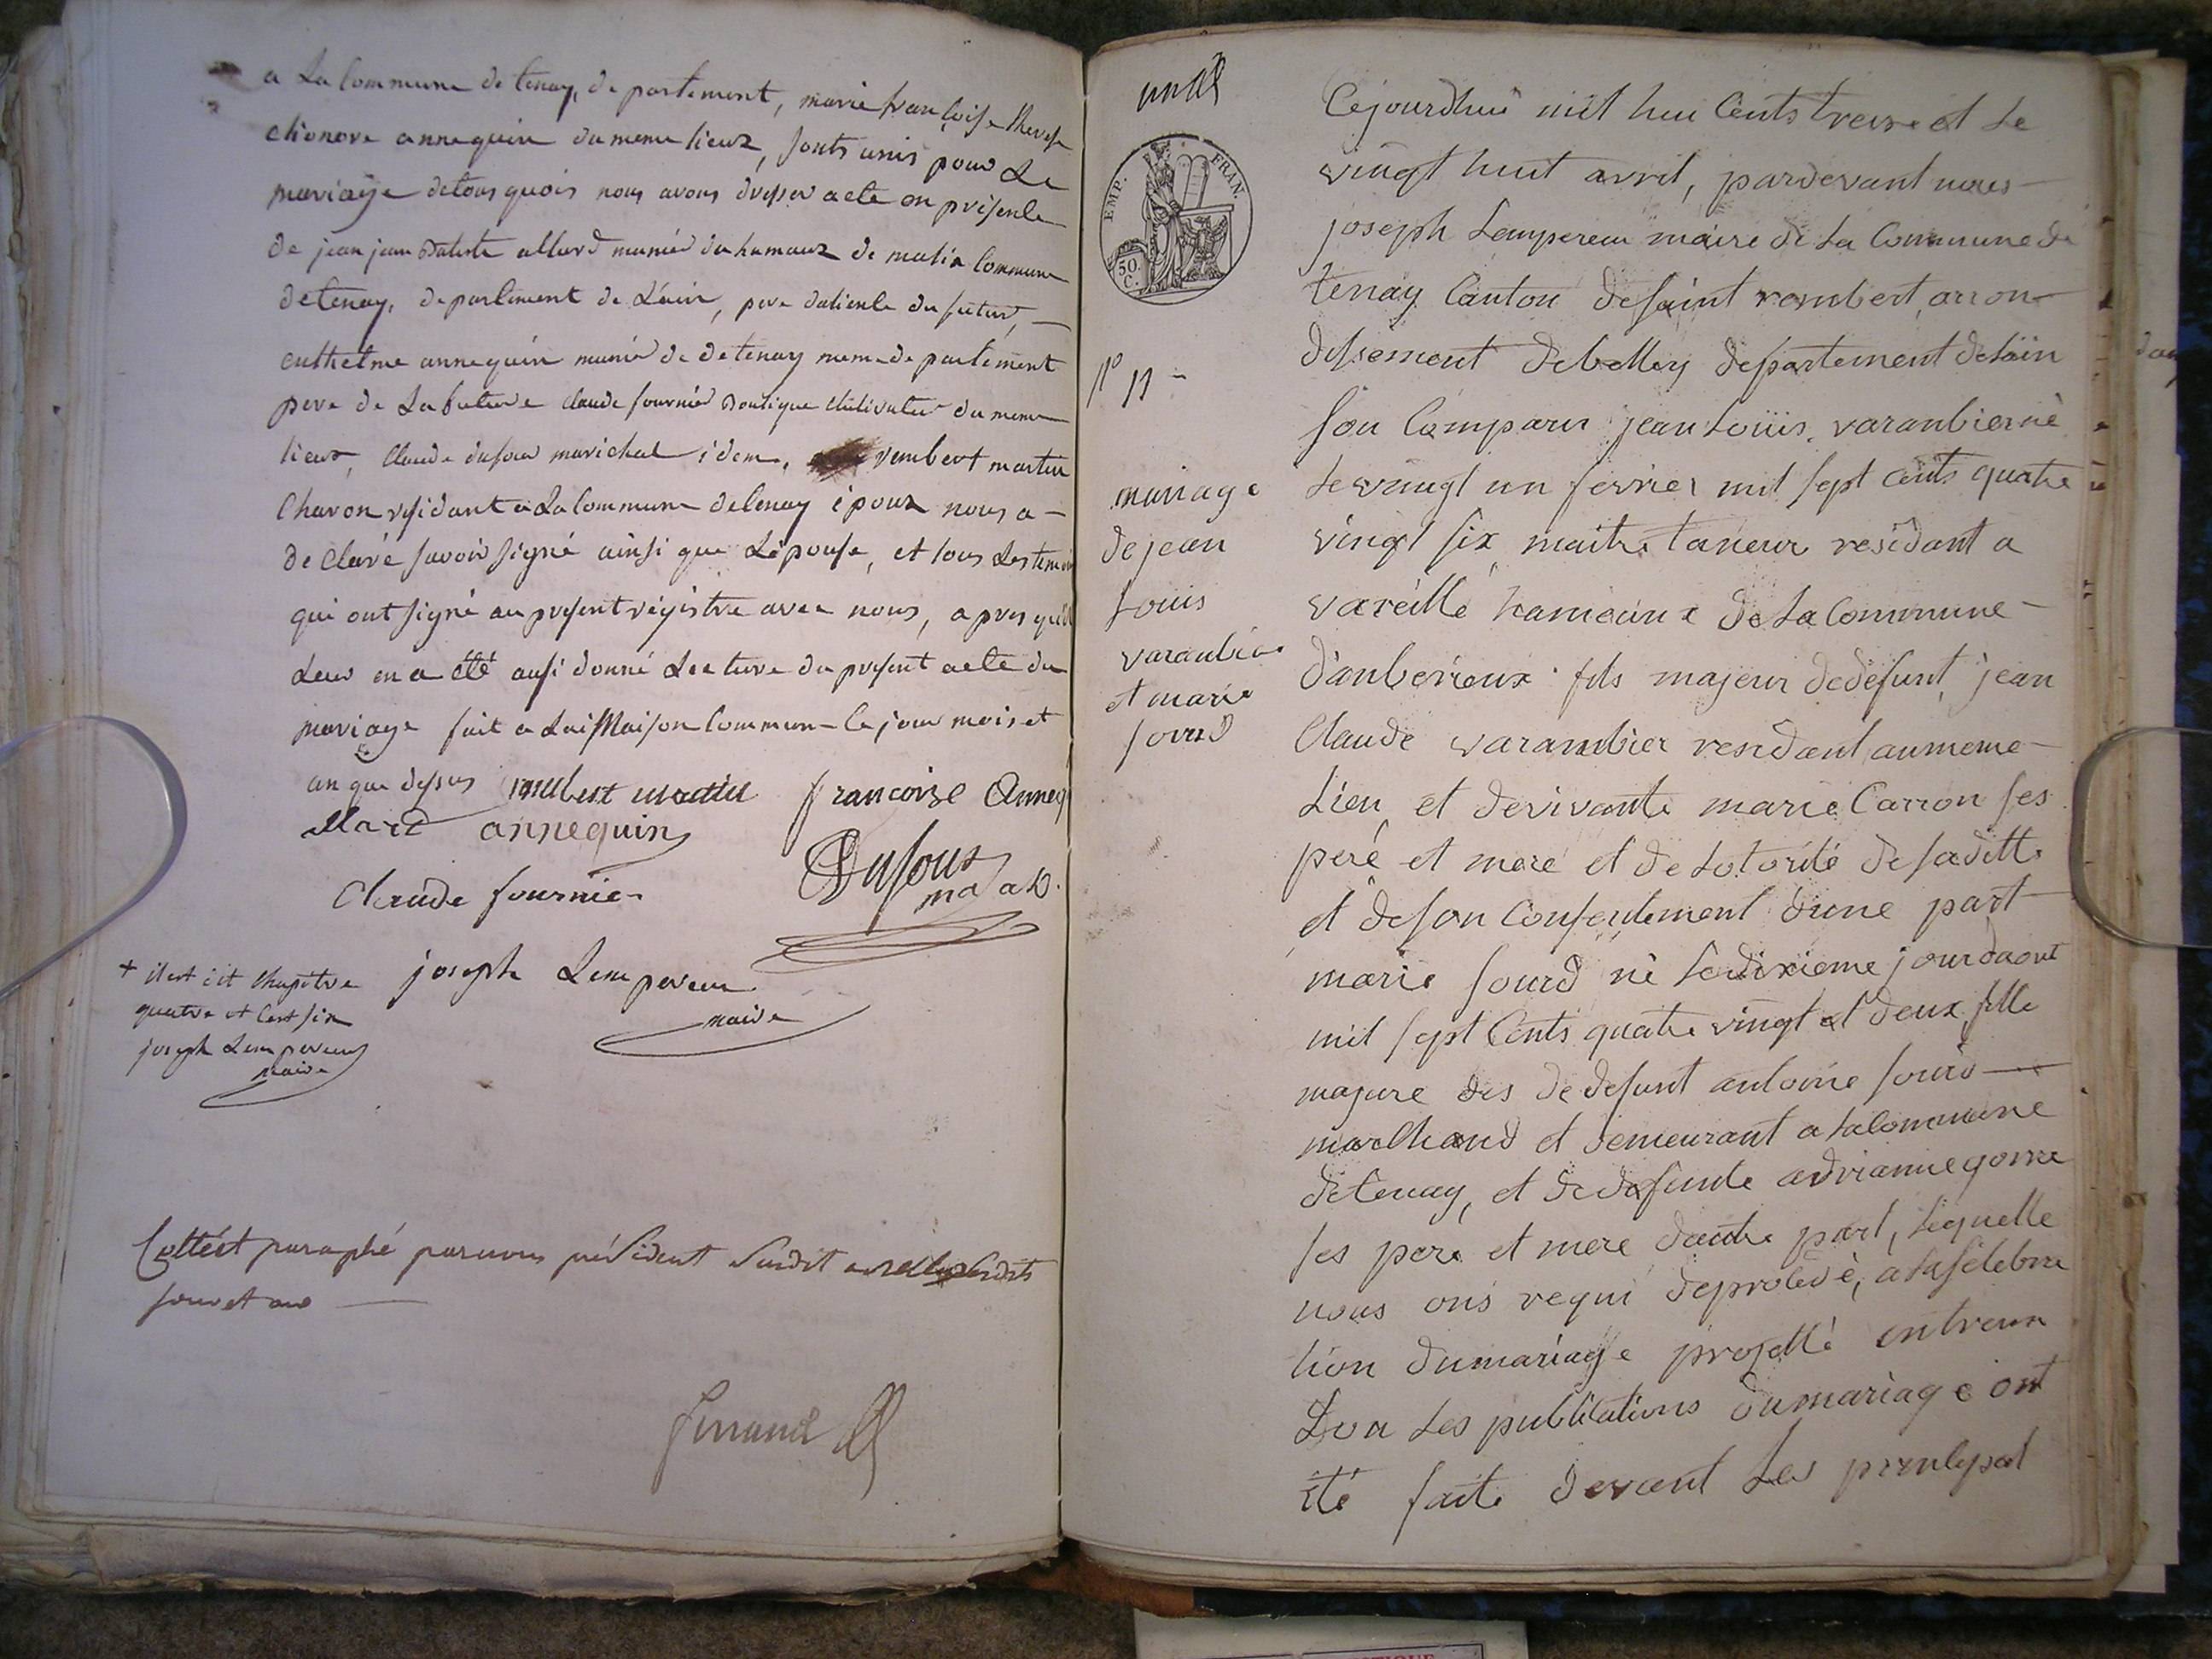 a La Commune de tenay, departement, marie françoise therese
elionore annequin du meme lieux, sonts unis pour Le
mariage detous quois nous avons dresser acte en présente
de jean jean Batiste allard munié du hamaux de malix Commune
detenay, departement de L'ain, pere du futur,
anthelme annequin munié de detenay meme departement
pere de La future Claude fournié du meme
lieux, Claude dufour marichal idem, rembert martin
Charon residant a La Commune detenay époux nous a
de Claré savoir signé ainsi que L'épouse, et tous Les temoins
qui ont signé au present régistre avec nous, apres qu'il
Leur en a été ausi donné Lecture du present acte du
mariage fait a Maison Commune Ce jour mois et
an que dessus rambert martin françoise Anneq
allard annequin
Claude fournier Dufour
joseph Lempereur
maire
+ il est dit Chapitre
quatre et C'est six
joseph Lempereur
maire
Cotté et paraphé par nous président
ferrand
EMP. FRAN.
50. C.
n° 11
mariage
de jean
Louis
varanbier
et marie
sourd
Cejourdhui mil hui Cents treize et Le
vingt huit avril, pardevant nous
joseph Lempereur maire de La Commune de
tenay Canton desaint rembert, arron
dissement debelley departement delain
son Comparu jean Louis varanbier né
Le vingt un fevrier mil sept cents quatre
vingt six maitre taneur residant a
vareille hameaux de La Commune
d'anberieux fils majeur dedefunt jean
Claude varambier residant aumeme
Lieu et devivante marie Carron ses
peré et mere et de Lotorité desaditte
et deson Consentement dune part
marie sourd né Ledixieme jour daout
mil sept Cents quatre vingt et deux fille
majure des dedefunt antoine sourd
marChand et demeurant a LaCommune
detenay, et dedefunte adrianne gorra
ses pere et mere dautre part, Lequelle
nous ons requi deprocedé, a Lasélebra
tion dumariage projetté entreux
Dont Les publications dumariage ont
été faite devant La principal